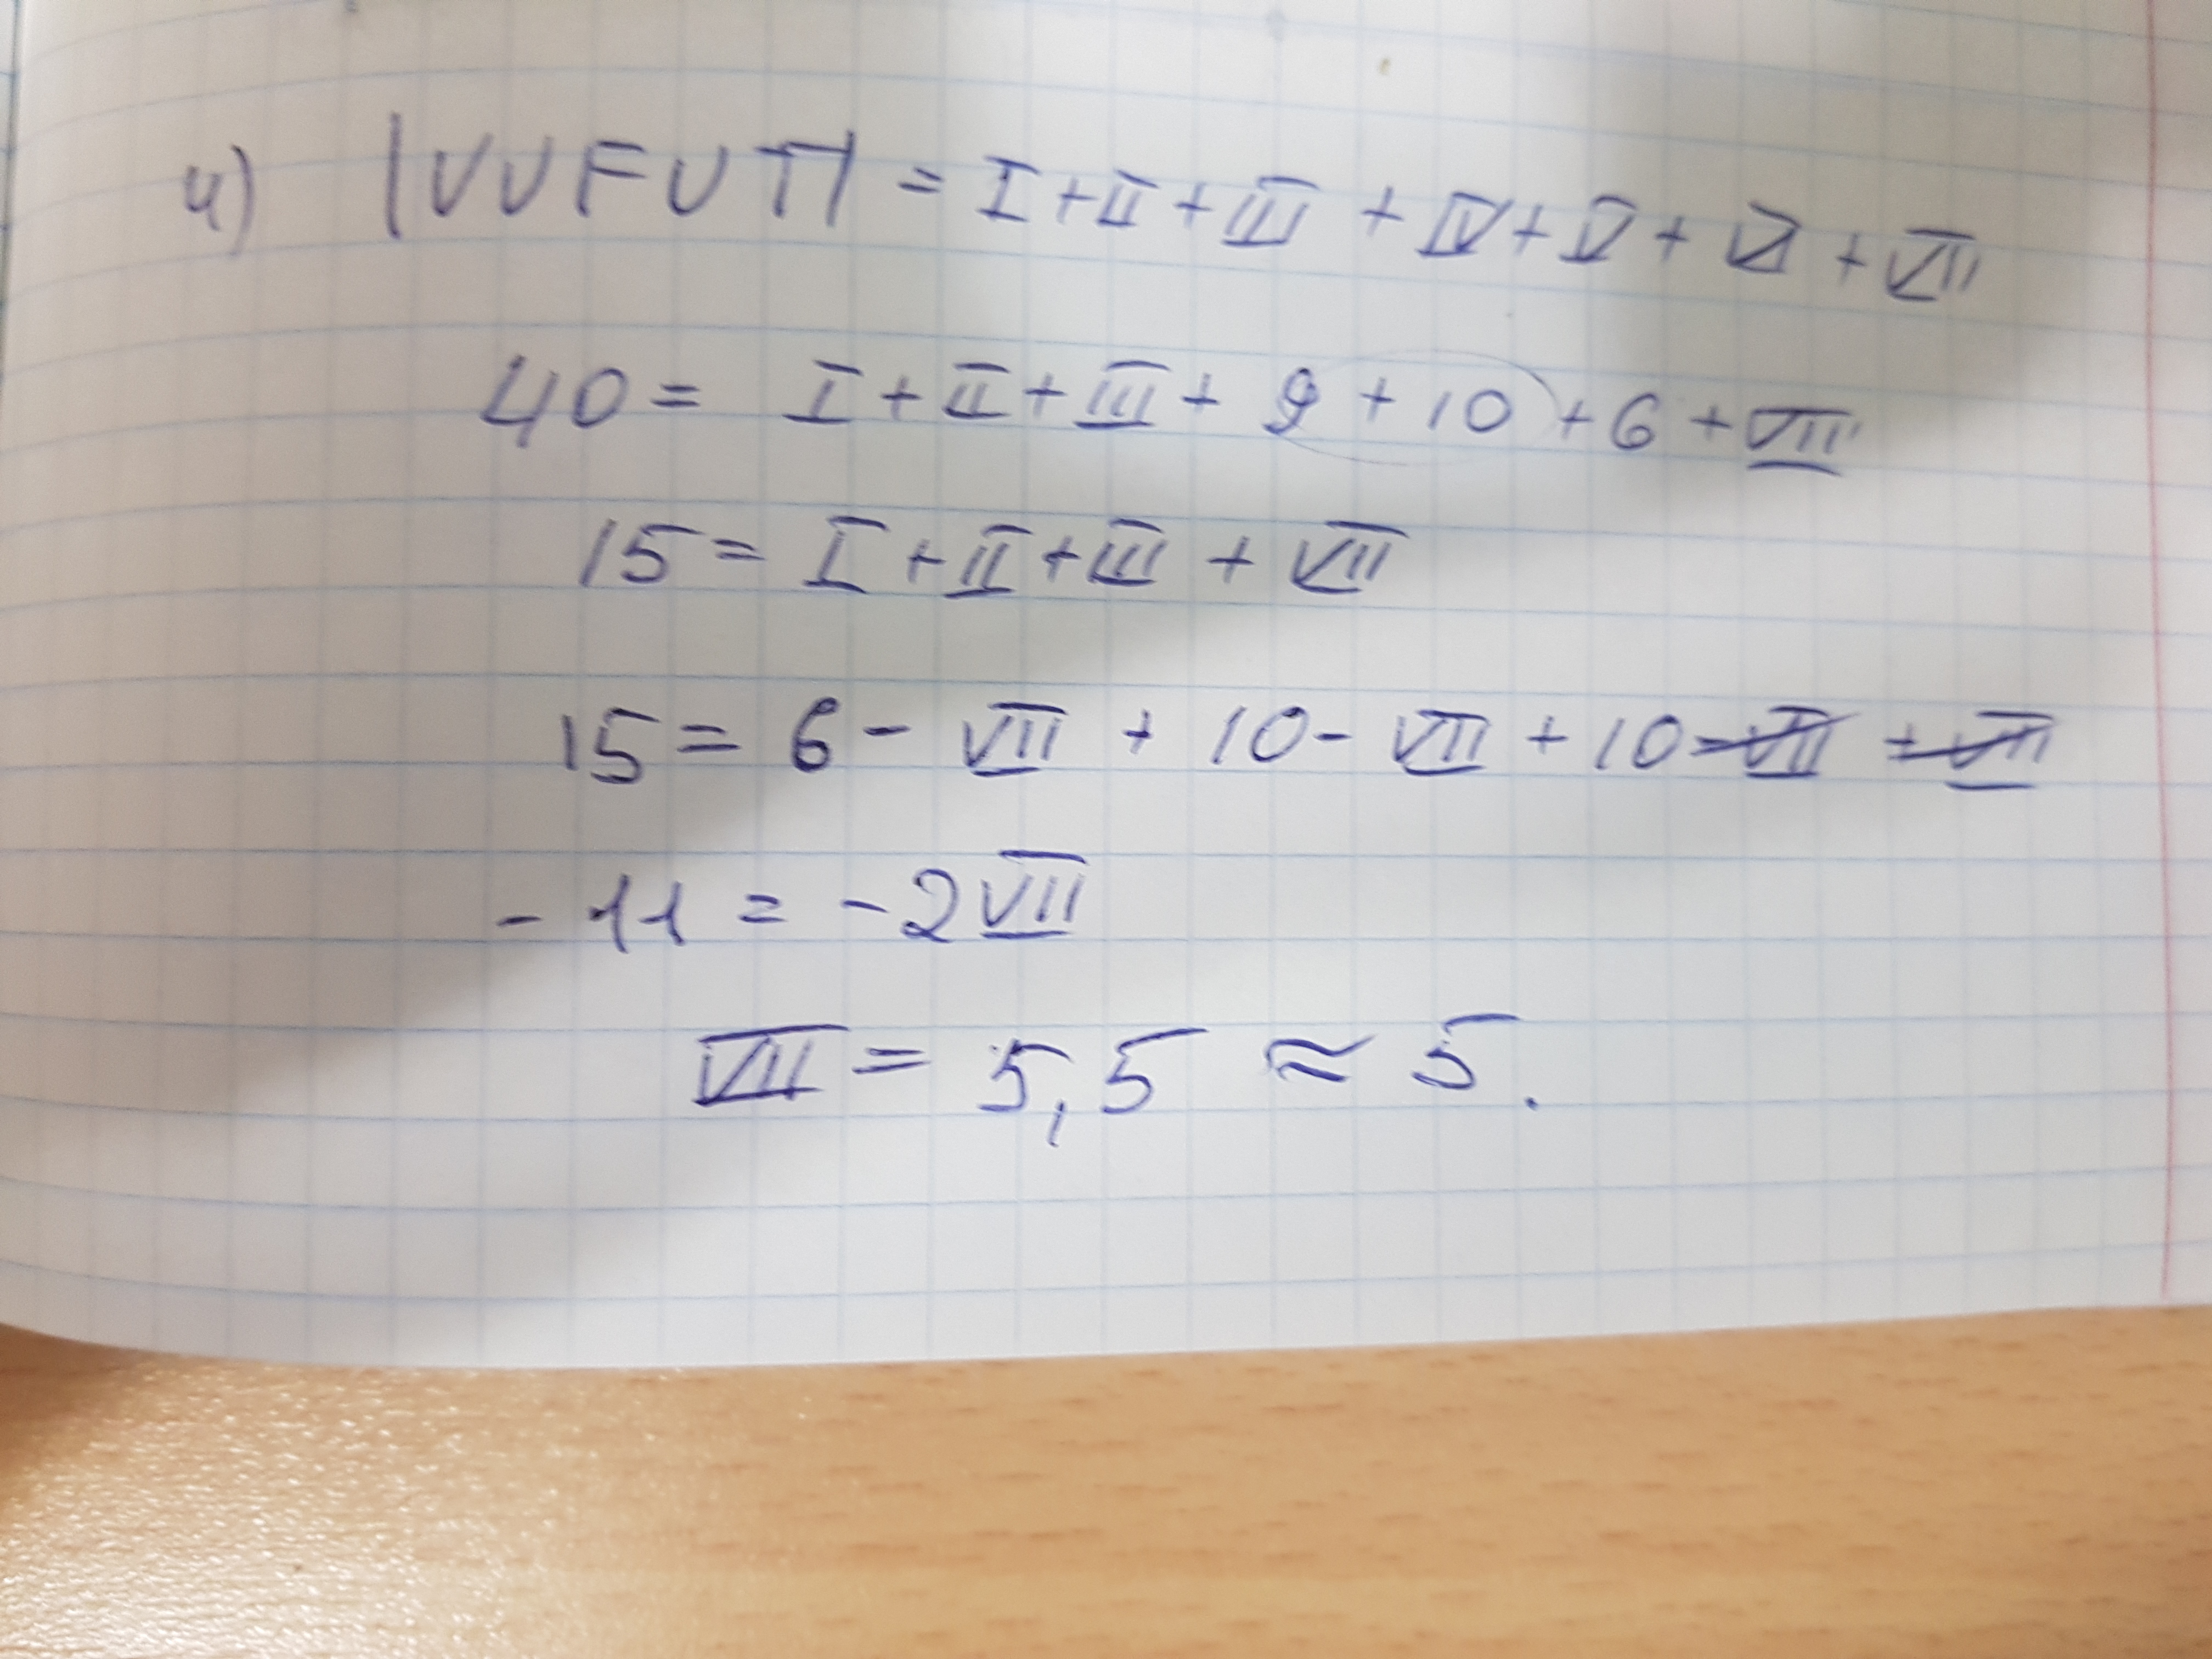 4) |VUFUT| = I + II + III + IV + V + VI + VII
40 = I + II + III + 9 + 10 + 6 + VII
15 = I + II + III + VII
15 = 6 - VII + 10 - VII + 10 - VII + VII
- 11 = - 2 VII
VII = 5,5 ≈ 5.